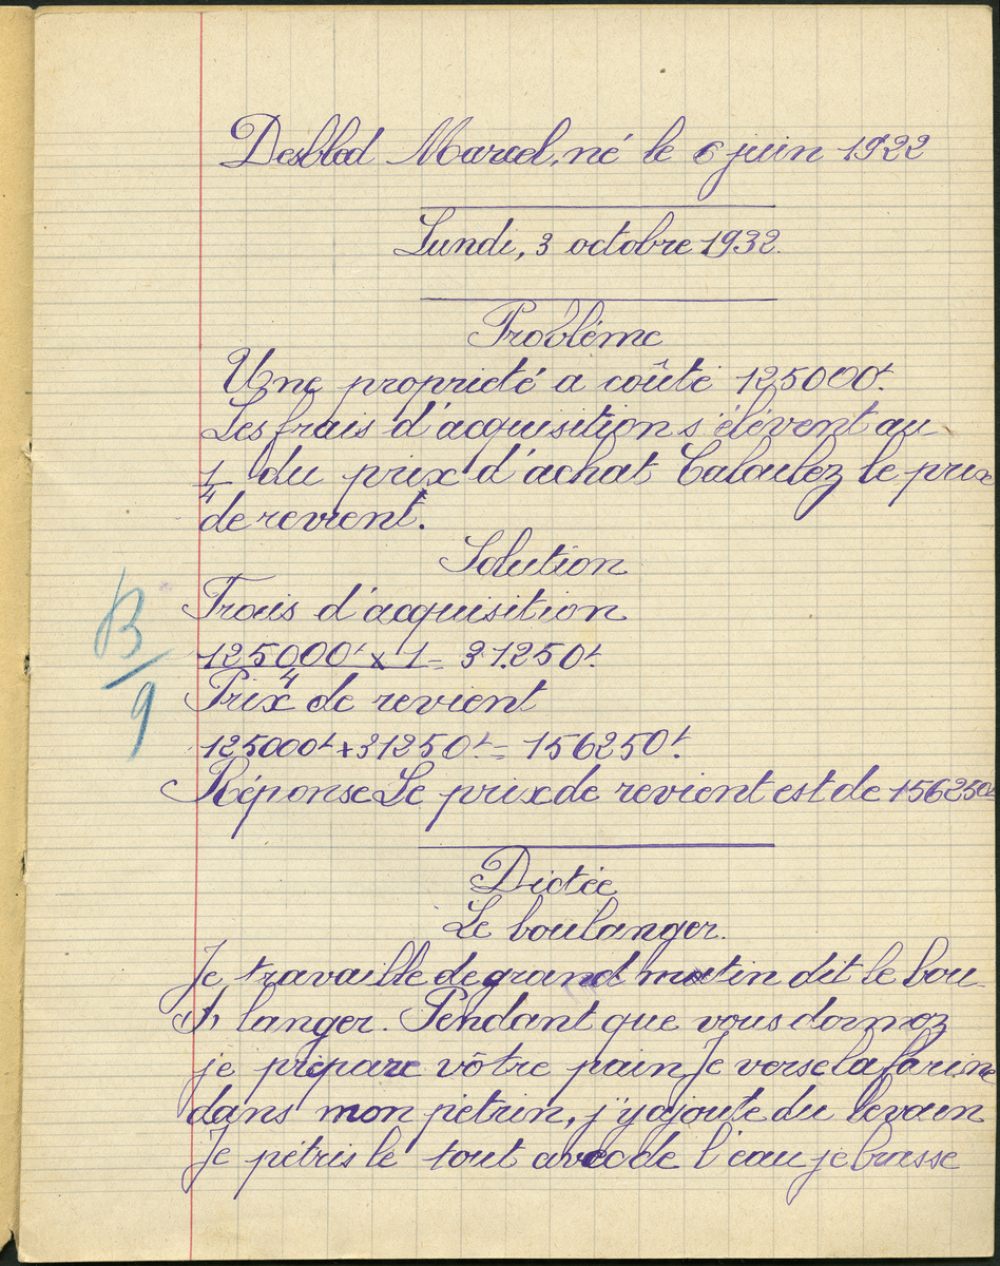 Desblod Marcel, né le 6 juin 1922
Lundi, 3 octobre 1932.
Problème
Une proprieté a coûté 125000f.
Les frais d'acquisition s'élèvent au
1/4 du prix d'achat. Calculez le prix
de revient.
Solution
Frais d'acquisition
125000f x 1 = 31.250f.
4
Prix de revient
125000f + 31250f = 156250f.
Réponse Le prix de revient est de 156250f
B/9
Dictée
Le boulanger.
Je travaille de grand matin dit le bou-
langer. Pendant que vous dormez
je prépare vôtre pain. Je verse la farine
dans mon pétrin, j'y ajoute du levain
Je pétris le tout avec de l'eau je brasse